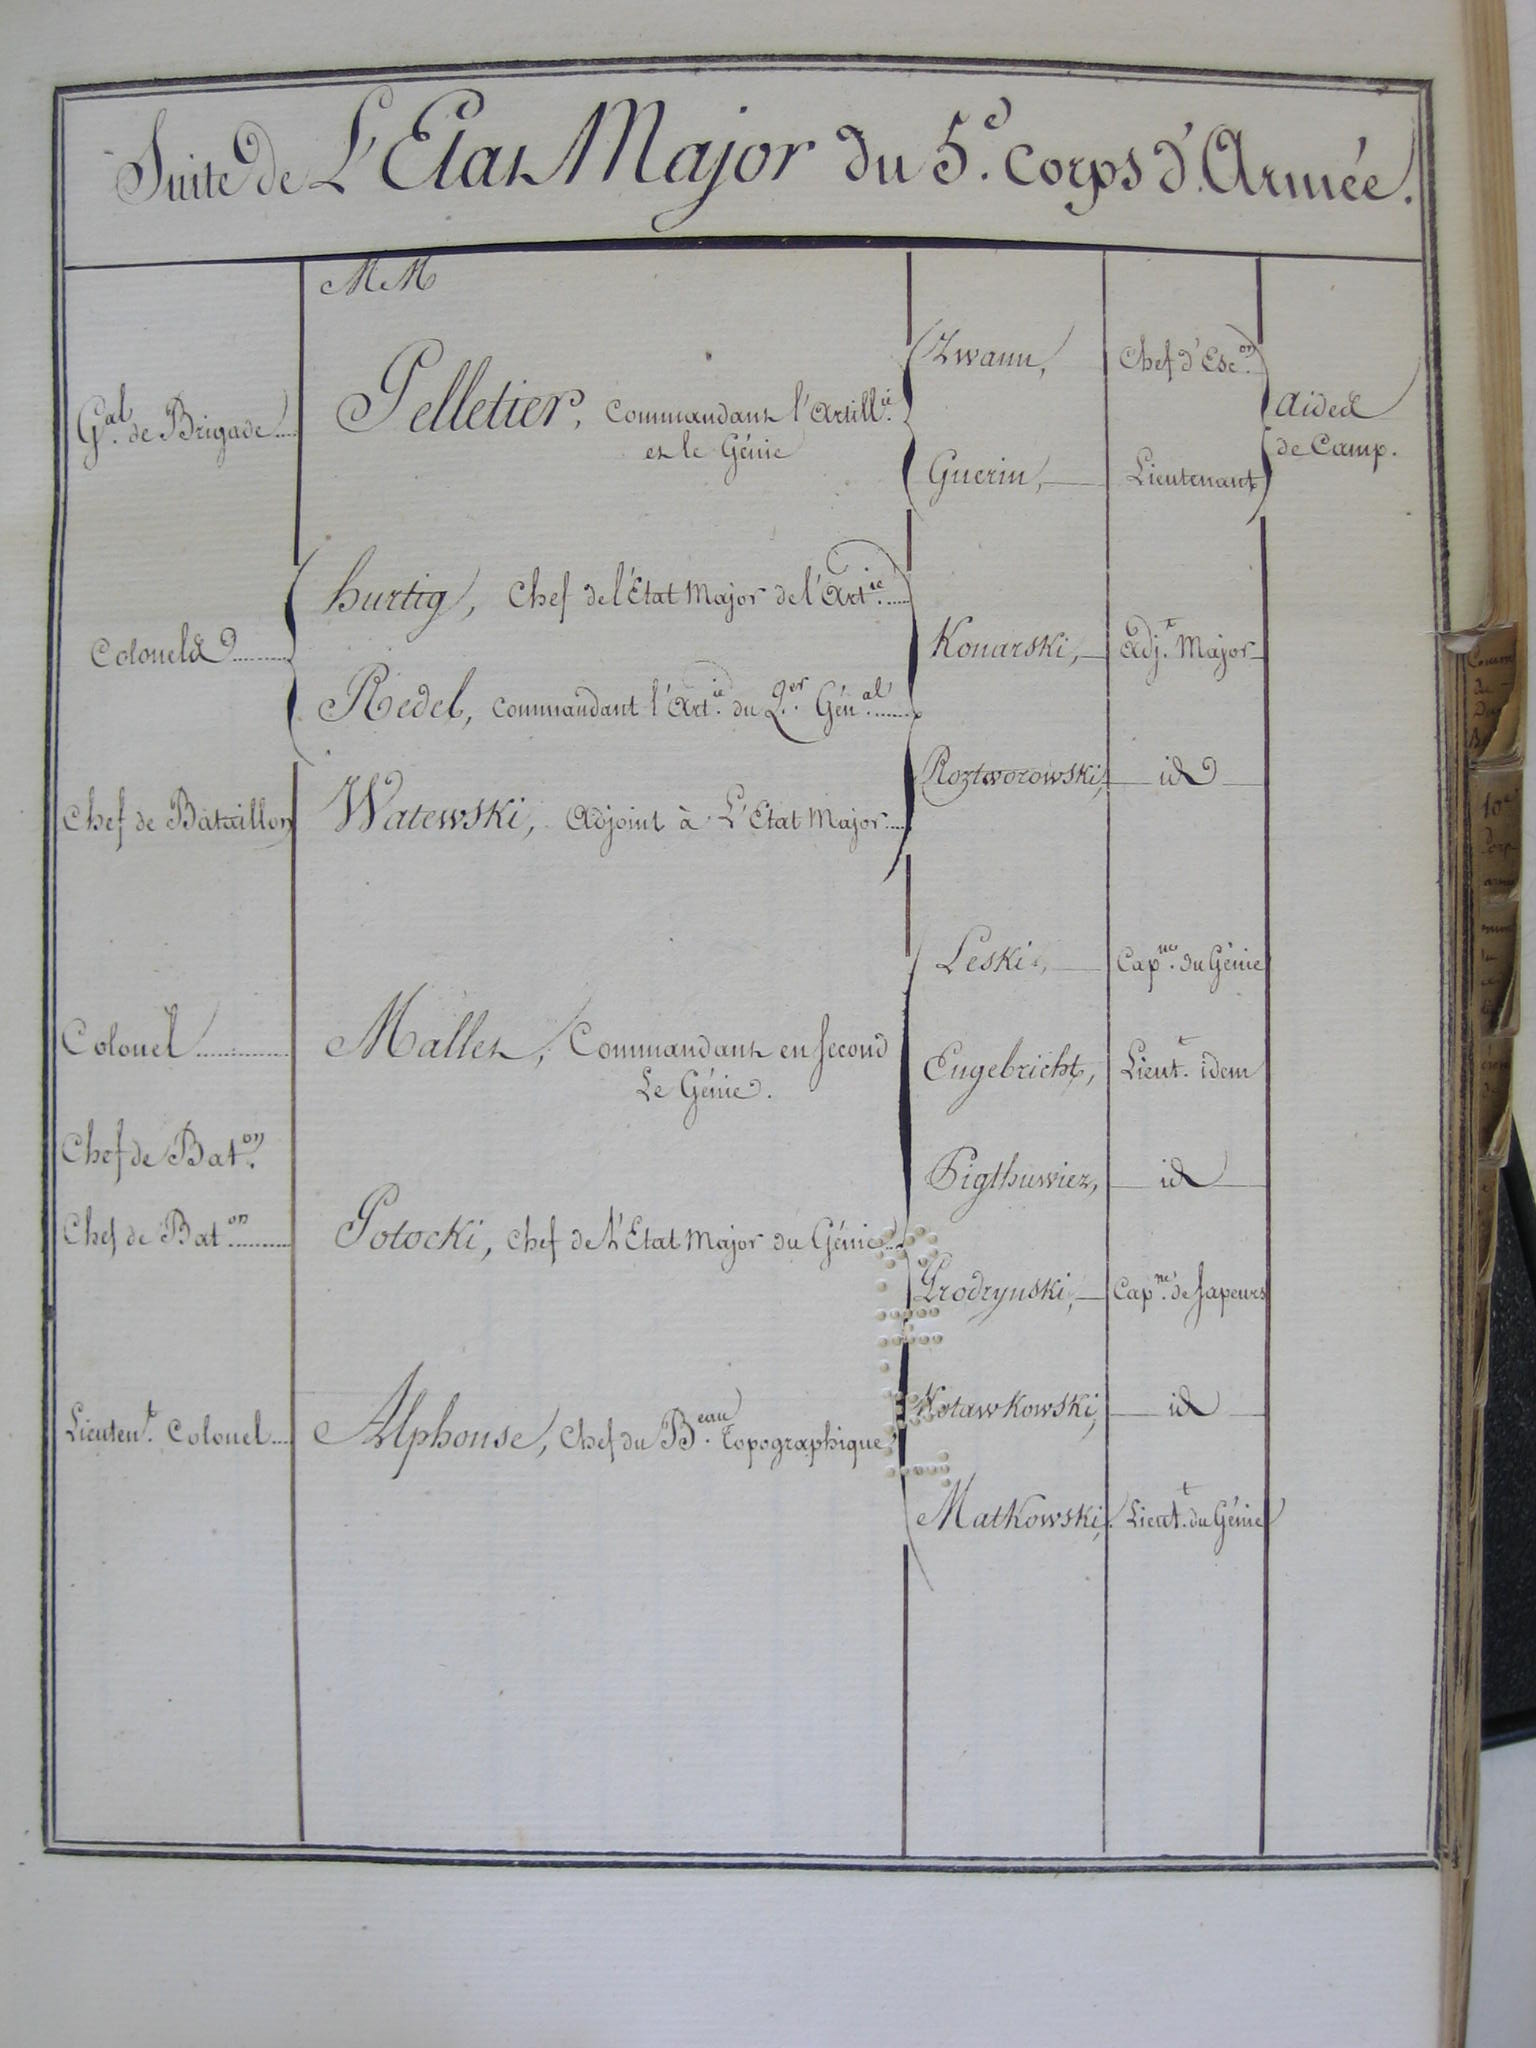 Suite de L'Etat Major du 5.e corps d'Armée.
MM
G.al de Brigade
Pelletier, Commandant l'Artill.ie
et le Génie
Zwann, Chef d'Esc.on
Guerin, Lieutenant
Aides
de Camp.
Colonels
hurtig, Chef de l'Etat Major de l'Art.ie
Redel, Commandant l'Art.ie du Q.er Gén.al
Konarski, Adj.t Major
Roztworowski, id
Chef de Bataillon
Watewski, Adjoint à L'Etat Major
Colonel
Mallet, Commandant en Second
Le Génie.
Leski, Cap.ne du Génie
Engebricht, Lieut.t idem
Chef de Bat.on
Pigthuwiez, id
Chef de Bat.on
Potocki, Chef de L'Etat Major du Génie
Grodzynski, Cap.ne de Sapeurs
Lieuten.t Colonel
Alphonse, Chef du B.eau Topographique
Kotawkowski, id
Matkowski, Lieut.t du Génie